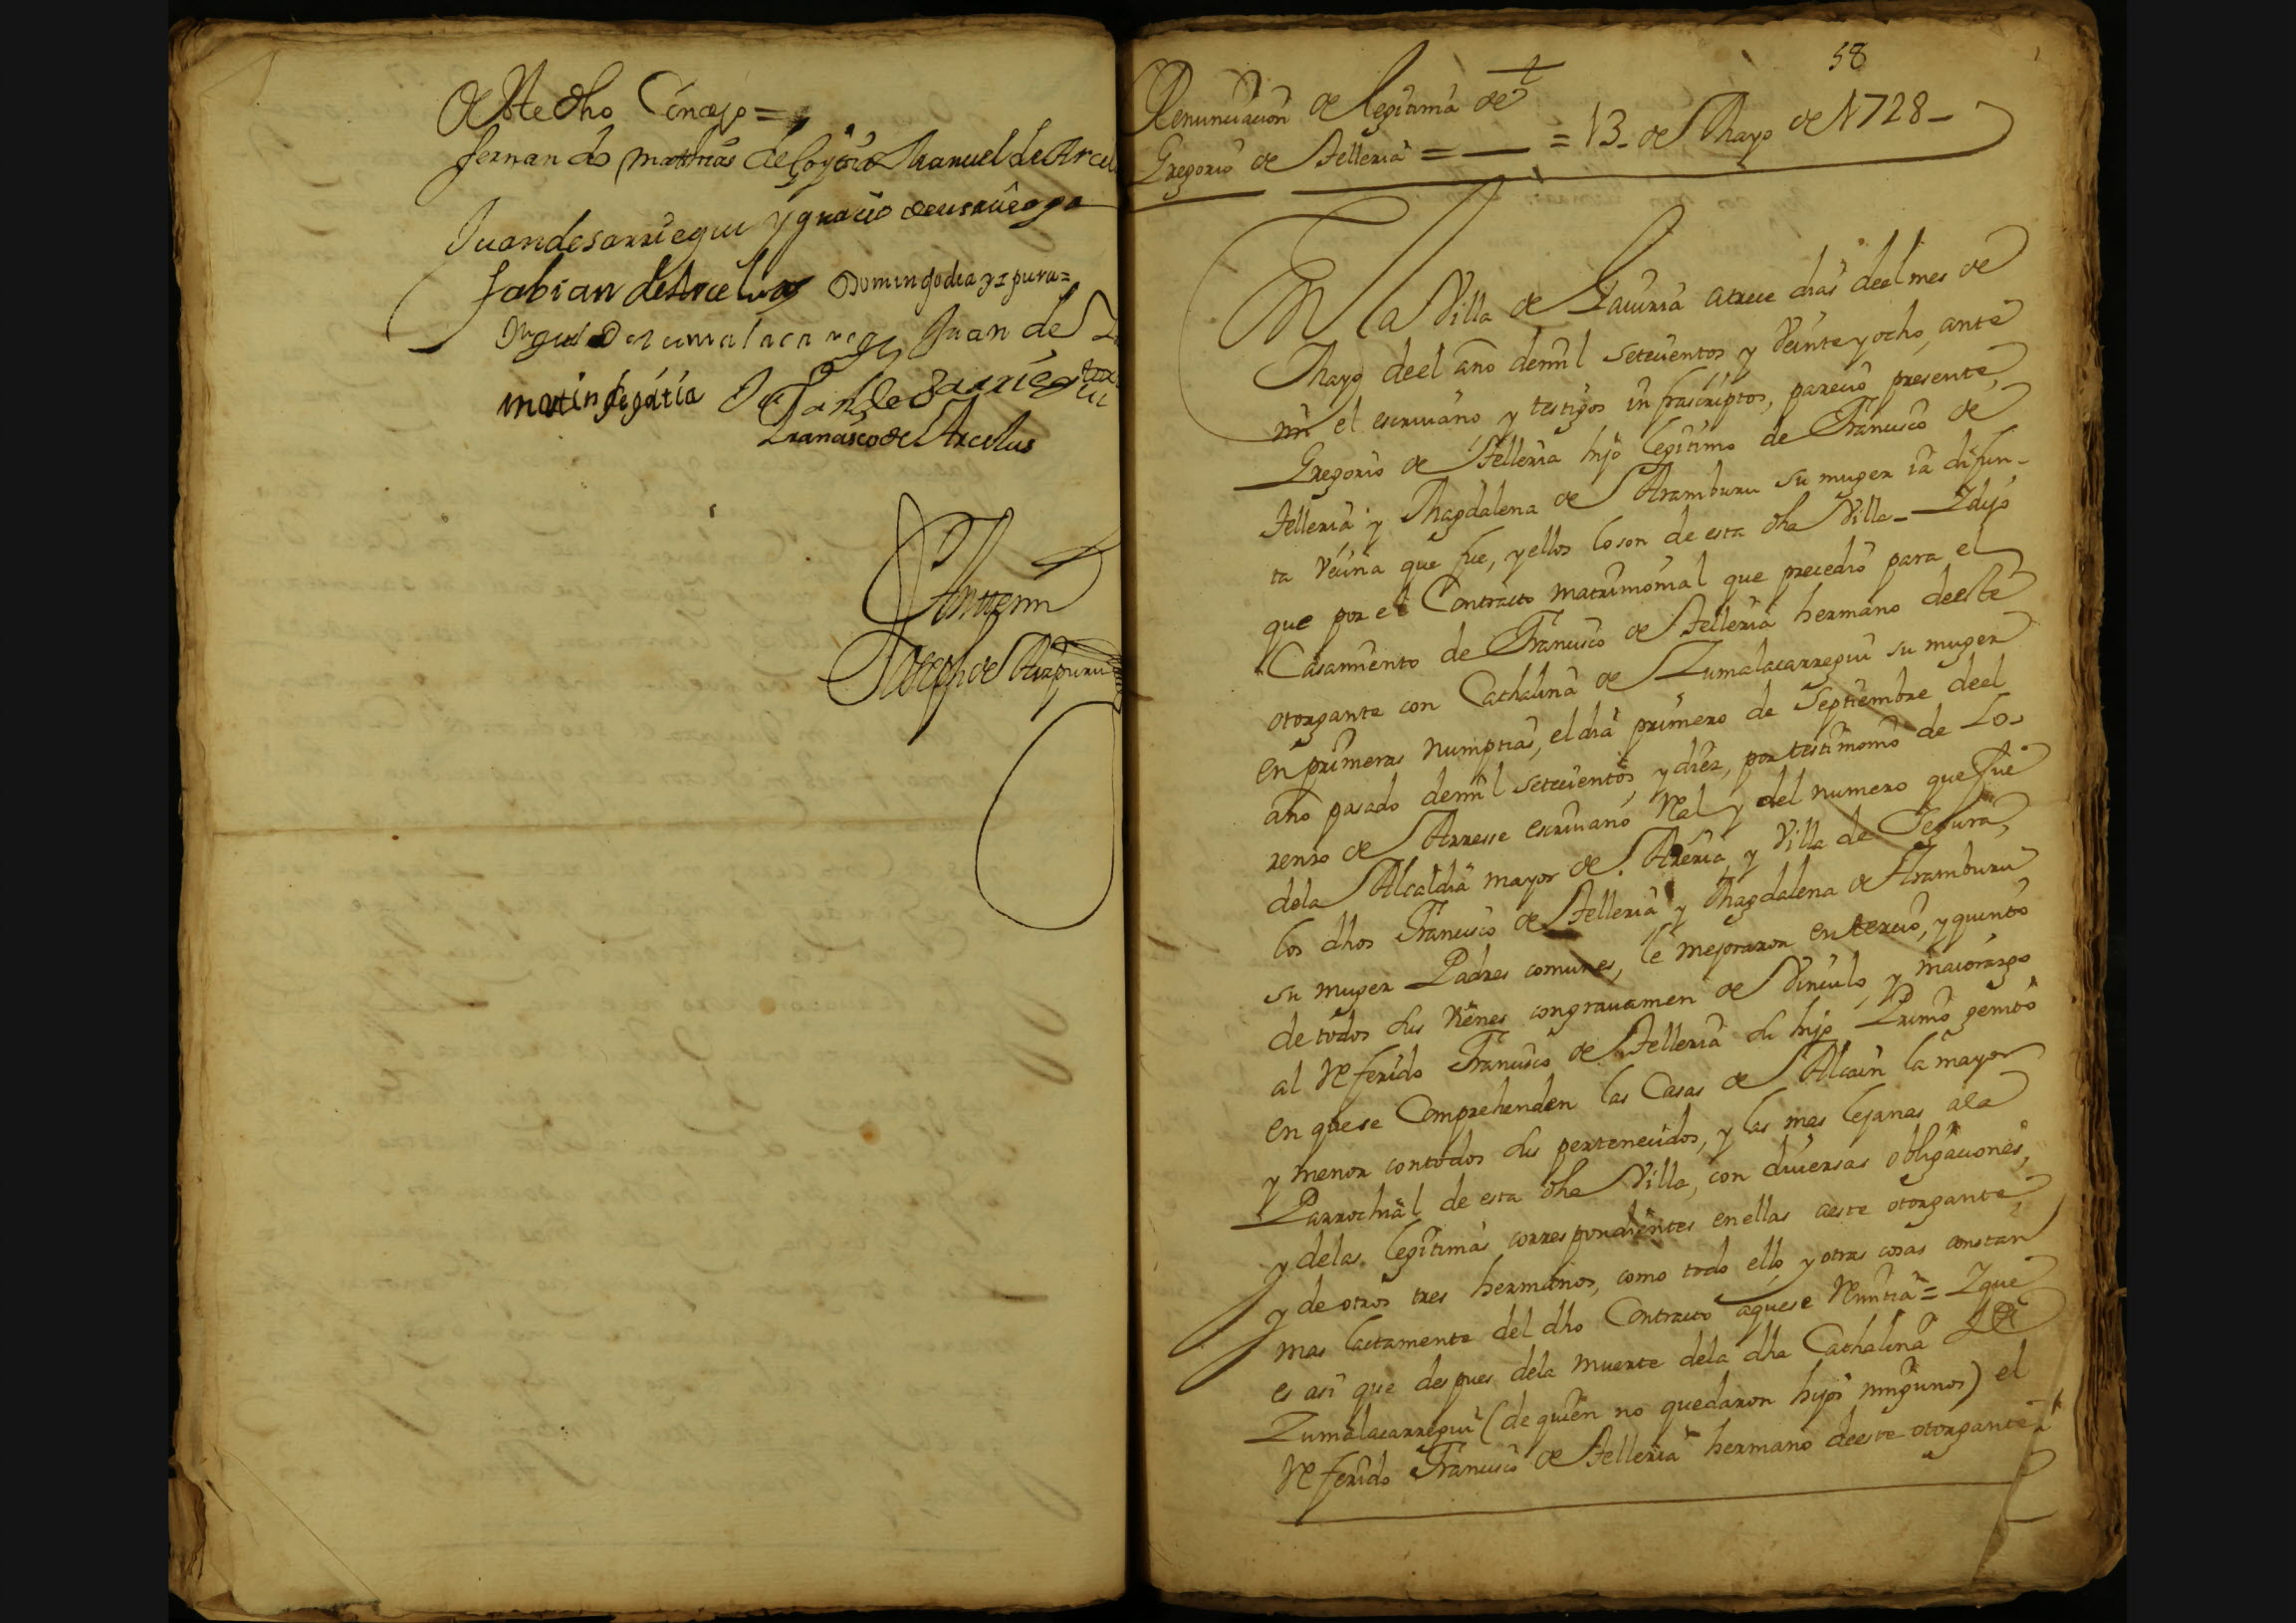 de este dho Concejo =
fernando mathias de Manuel de Arcel
Juan de sarriegui Ygnacio de usurraga
fabian de Arcelus Domingo de azpuru=
Miguel de zumalacarregi Juan de
martin de gatia Juan de Sarriegui
Francisco de Arcelus
Ante mi
Joseph de Aizpuru
58
Renunciacion de legitima de
Gregorio de Telleria = — = 13 de Mayo de 1728 –
En la Villa de Gaviria a trece dias de el mes de
Mayo de el año de mil setecientos y veinte y ocho, ante
mi el escriuano y testigos infrascriptos, parecio presente,
Gregorio de Telleria hijo legitimo de Francisco de
Telleria y Magdalena de Aramburu su muger ia difun-
ta vecina que fue, y ellos lo son de esta dha Villa – Y dijo
que por el Contracto matrimonial que precedio para el
Casamiento de Francisco de Telleria hermano de este
otorgante con Cathalina de Zumalacarregui su muger
en primeras numptias, el dia primero de Septiembre de el
año pasado de mil setecientos y diez, por testimonio de Lo-
renzo de Arresse escriuano Real y del numero que fue
de la Alcaldia mayor de Areria y Villa de Segura,
los dhos Francisco de Telleria y Magdalena de Aramburu
su muger Padres comunes, le mejoraron en tercio, y quinto
de todos sus vienes con grauamen de Vinculo y maiorazgo
al Referido Francisco de Telleria su hijo Primo genito
en que se Comprehenden las Casas de Alcain la mayor
y menor con todos sus pertenecidos, y las mas lejanas a la
Parrochial de esta dha Villa, con diuersas obligaciones,
y de las legitimas correspondientes en ellas a este otorgante,
y de otros tres hermanos, como todo ello y otras cosas constan
mas lactamente del dho Contracto a que se Remitia = Y que
es asi que despues de la muerte de la dha Cathalina de
Zumalacarregui (de quien no quedaron hijos ningunos) el
Referido Francisco de Telleria hermano de este otorgante